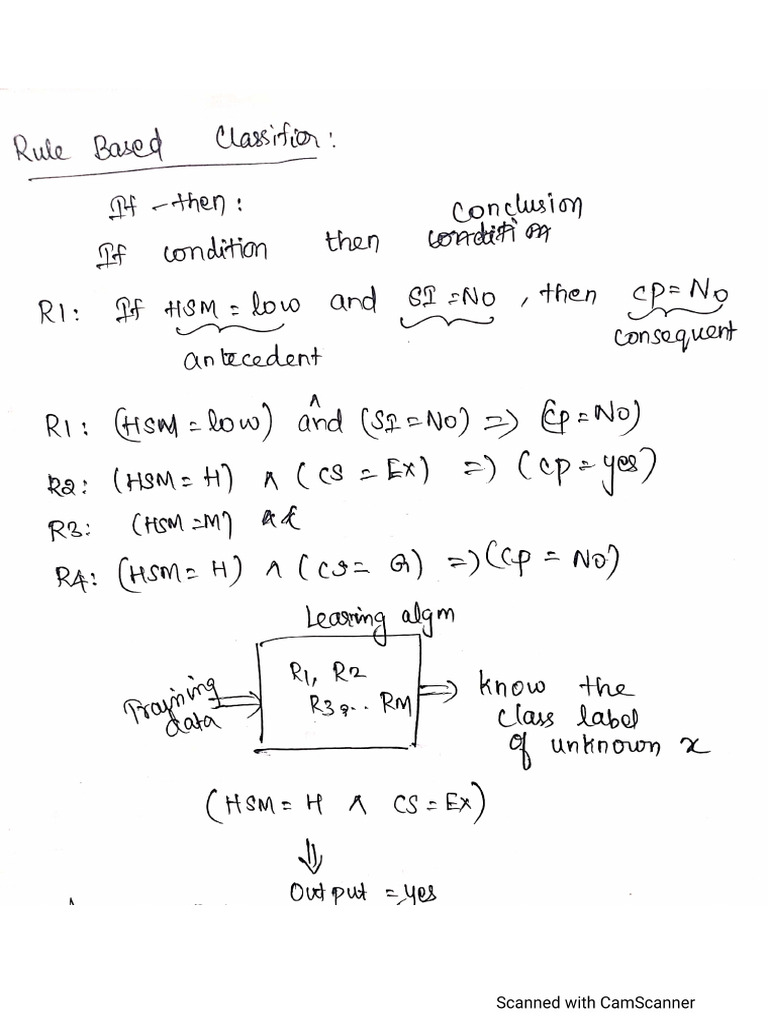 Rule Based Classifier:
If -then:
Conclusion
If condition then condition
R1: If HSM = low and SI = NO, then CP = No
antecedent
consequent
∧
R1: (HSM = low) and (SI = NO) => (CP = NO)
R2: (HSM = H) ∧ (CS = Ex) => (CP = yes)
R3: (HSM = M)
R4: (HSM = H) ∧ (CS = G) => (CP = NO)
Learning algm
Training data
R1, R2
R3, .. RM
know the
class label
of unknown x
(HSM = H ∧ CS = Ex)
⇓
Output = yes
Scanned with CamScanner